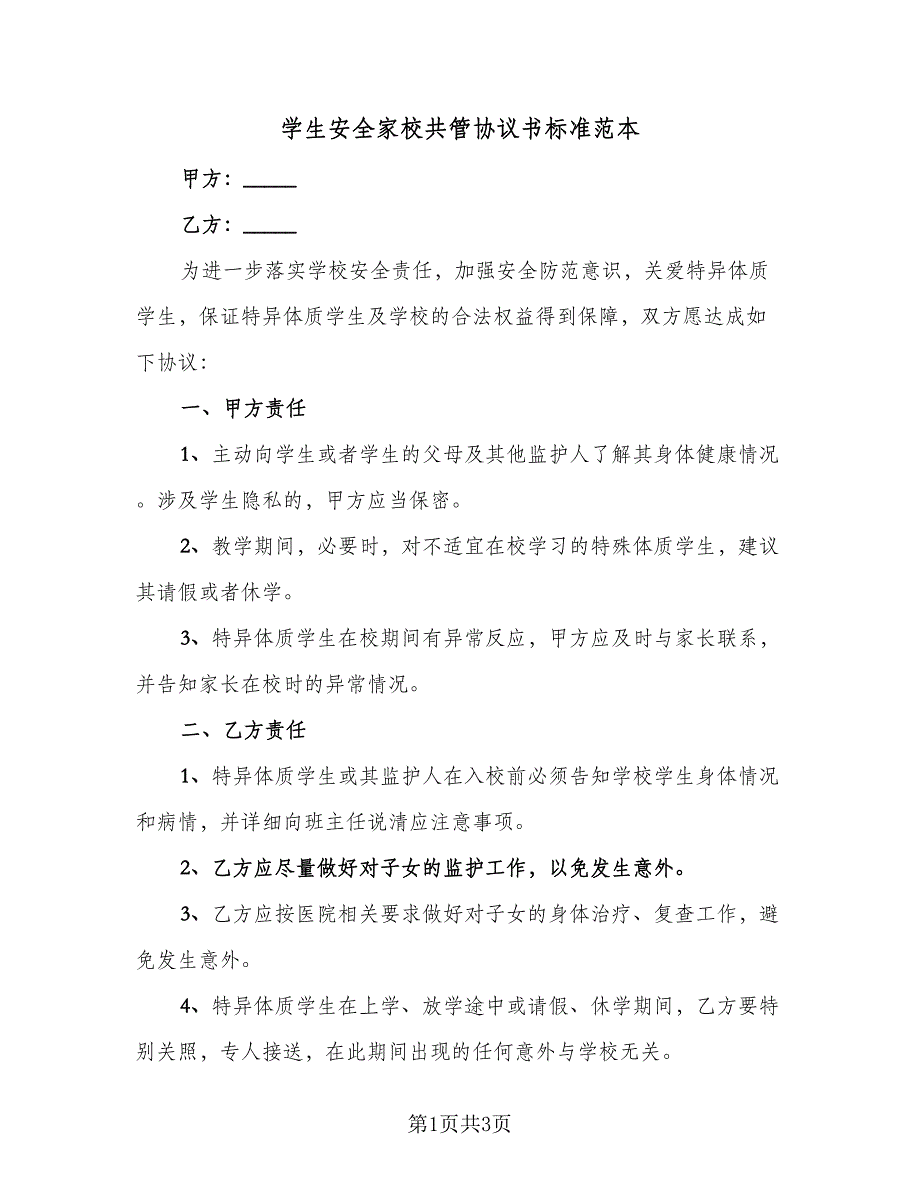 学生安全家校共管协议书标准范本
甲方：_____
乙方：_____
为进一步落实学校安全责任，加强安全防范意识，关爱特异体质
学生，保证特异体质学生及学校的合法权益得到保障，双方愿达成如
下协议：
一、甲方责任
1、主动向学生或者学生的父母及其他监护人了解其身体健康情况
。涉及学生隐私的，甲方应当保密。
2、教学期间，必要时，对不适宜在校学习的特殊体质学生，建议
其请假或者休学。
3、特异体质学生在校期间有异常反应，甲方应及时与家长联系，
并告知家长在校时的异常情况。
二、乙方责任
1、特异体质学生或其监护人在入校前必须告知学校学生身体情况
和病情，并详细向班主任说清应注意事项。
2、乙方应尽量做好对子女的监护工作，以免发生意外。
3、乙方应按医院相关要求做好对子女的身体治疗、复查工作，避
免发生意外。
4、特异体质学生在上学、放学途中或请假、休学期间，乙方要特
别关照，专人接送，在此期间出现的任何意外与学校无关。
第1页共3页